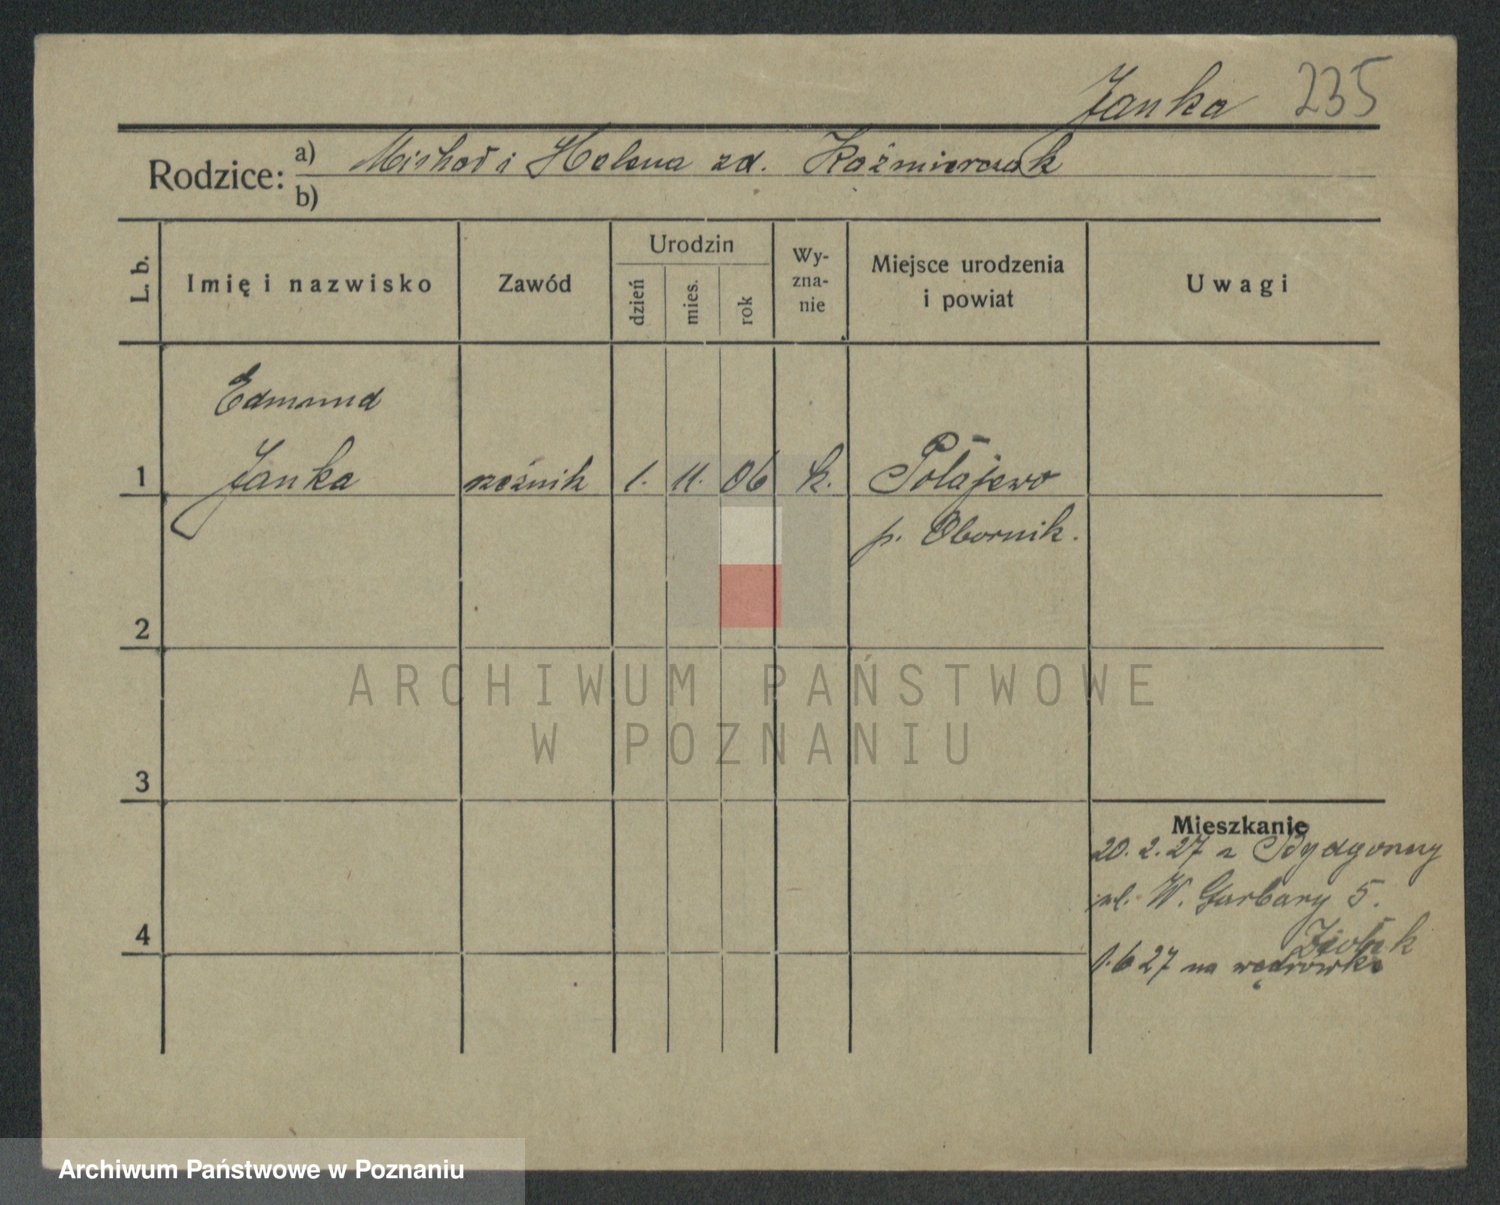 Janka 235
Rodzice: a) Michał i Helena zd. Kaźmierczak
b)
L. b. Imię i nazwisko Zawód Urodzin dzień mies. rok Wy-zna-nie Miejsce urodzenia i powiat Uwagi
Edmund
1 Janka rzeźnik 1. 11. 06 k. Połajewo
p. Obornik.
2
ARCHIWUM PAŃSTWOWE
W POZNANIU
3
Mieszkanie
20. 2. 27 z Bydgoszczy
ul. W. Garbary 5.
4
1.6 27 na wędrówkę
Archiwum Państwowe w Poznaniu